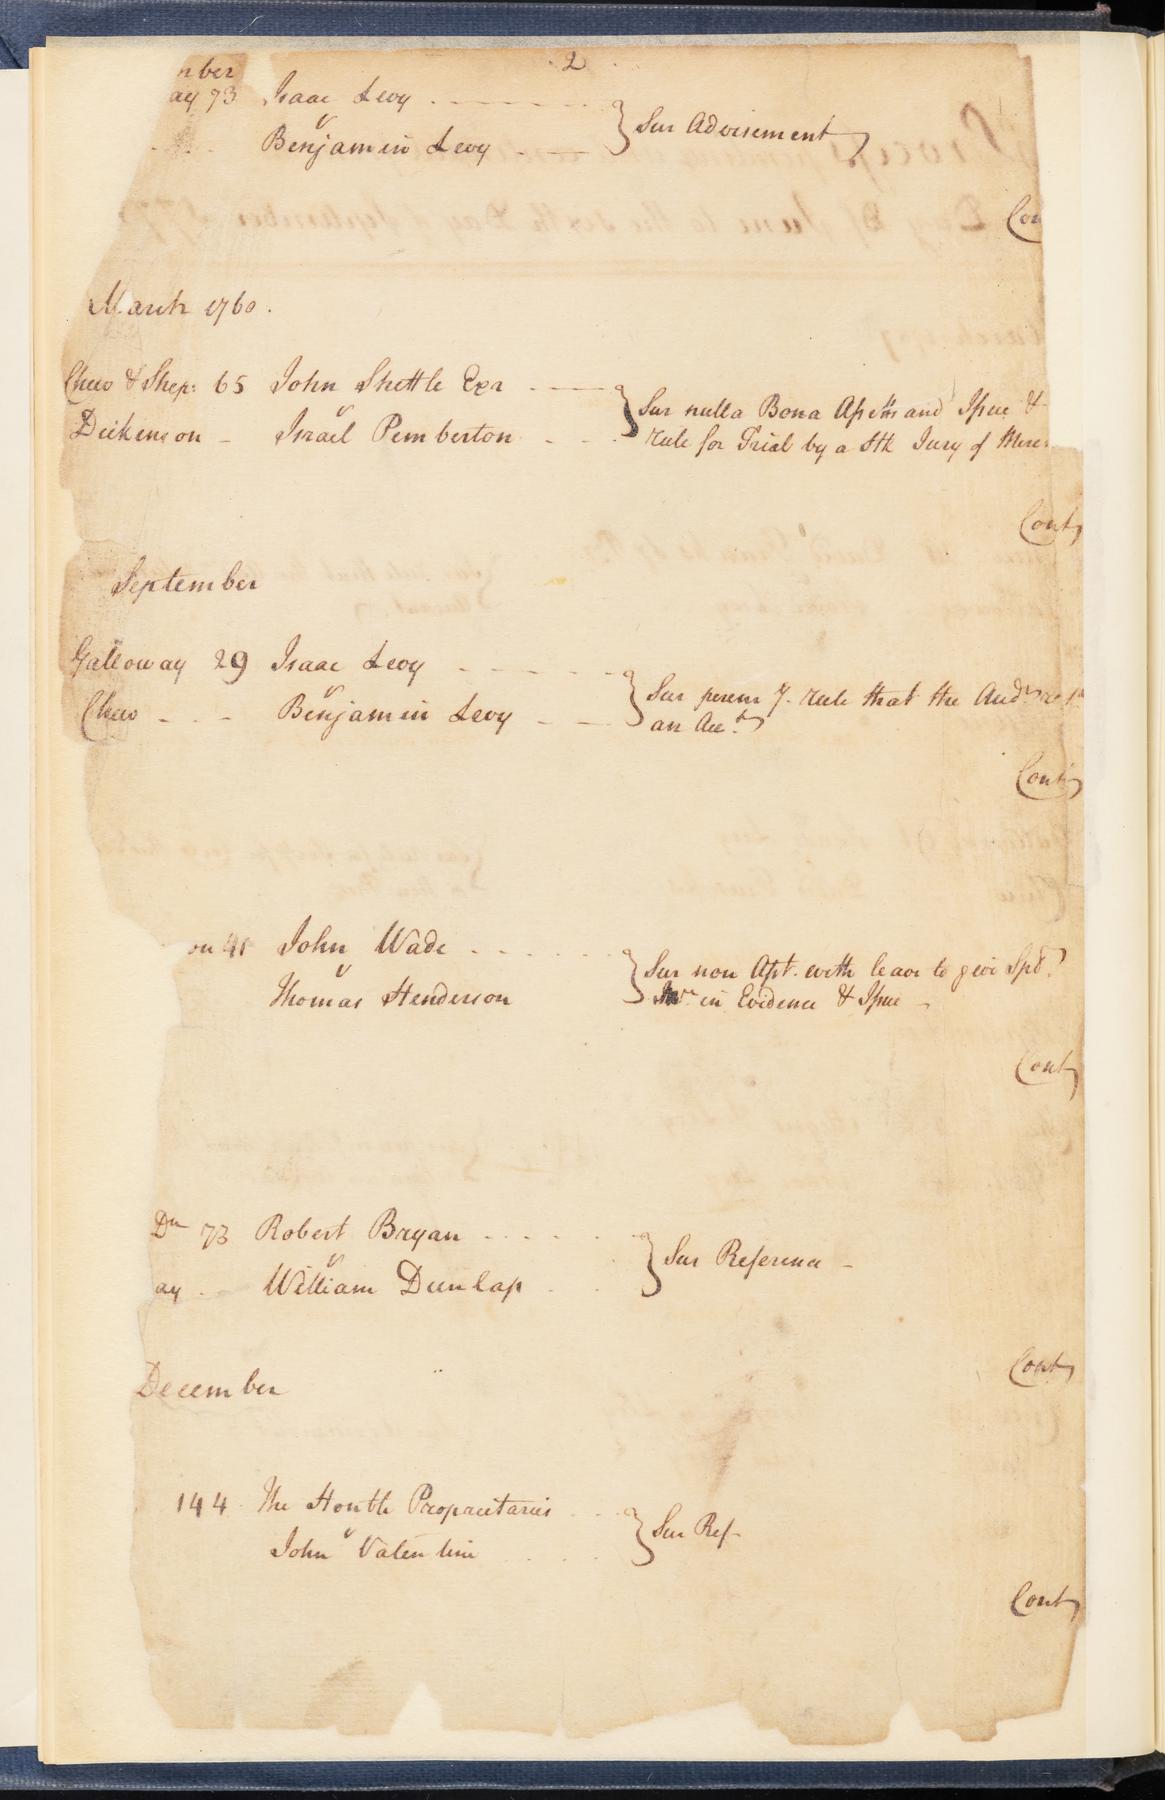 2
nber
ay 73 Isaac Levy
v
Benjamin Levy
Sur Advisement
Con
March 1760.
Chew & Shep: 65 John Shettle Exr
v
Dickenson - Israel Pemberton
Sur nulla Bona Assets and Issue &
rule for Trial by a Stk Jury of Mere
Cont
September
Galloway 29 Isaac Levy
v
Chew - - - Benjamin Levy
Sur rule that the Audrs
an Acct
Cont
on 41 John Wade
v
Thomas Henderson
Sur non Asst. with leave to give Spd.
in Evidence & Issue -
Cont
Dn 73 Robert Bryan
v
ay William Dunlap
Sur Reference -
Cont
December
144 The Honble Propraetaries
v
John Valentine
Sur Ref-
Cont